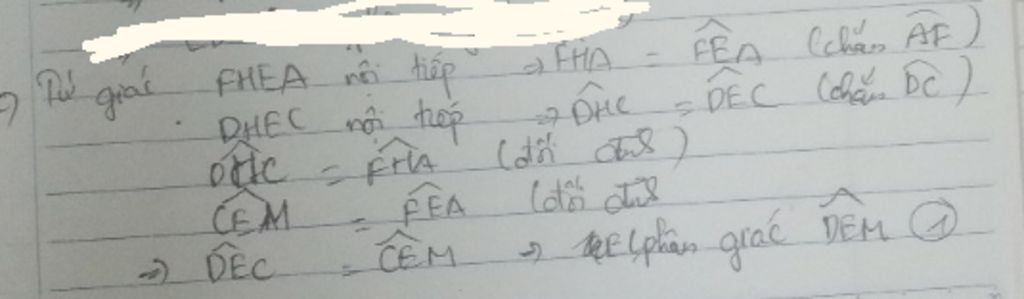 =) Tứ giác FHEA nội tiếp => F̂HA = F̂EA (chắn A͡F)
DHEC nội tiếp => D̂HC = D̂EC (chắn D͡C)
D̂HC = F̂HA (đối đỉnh)
ĈEM = F̂EA (đối đỉnh
=> D̂EC = ĈEM => EC phân giác D̂EM ①